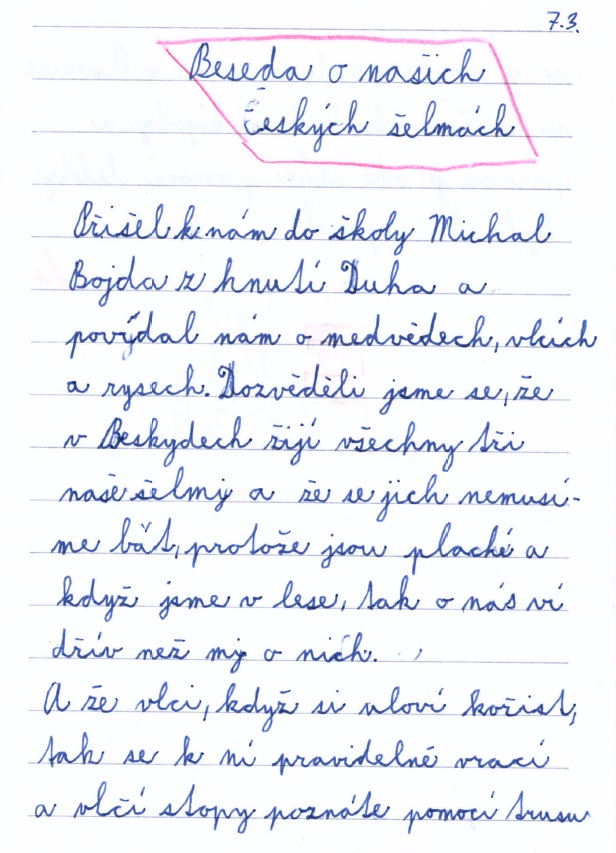 7.3.
Beseda o našich
Českých šelmách
Přišel k nám do školy Michal
Bojda z hnutí Duha a
povýdal nám o medvědech, vlcích
a rysech. Dozvěděli jsme se, že
v Beskydech žijí všechny tři
naše šelmy a že se jich nemusí-
me bát, protože jsou plaché a
když jsme v lese, tak o nás ví
dřív než my o nich.
A že vlci, když si uloví kořist,
tak se k ní pravidelně vrací
a vlčí stopy poznáte pomocí trusu